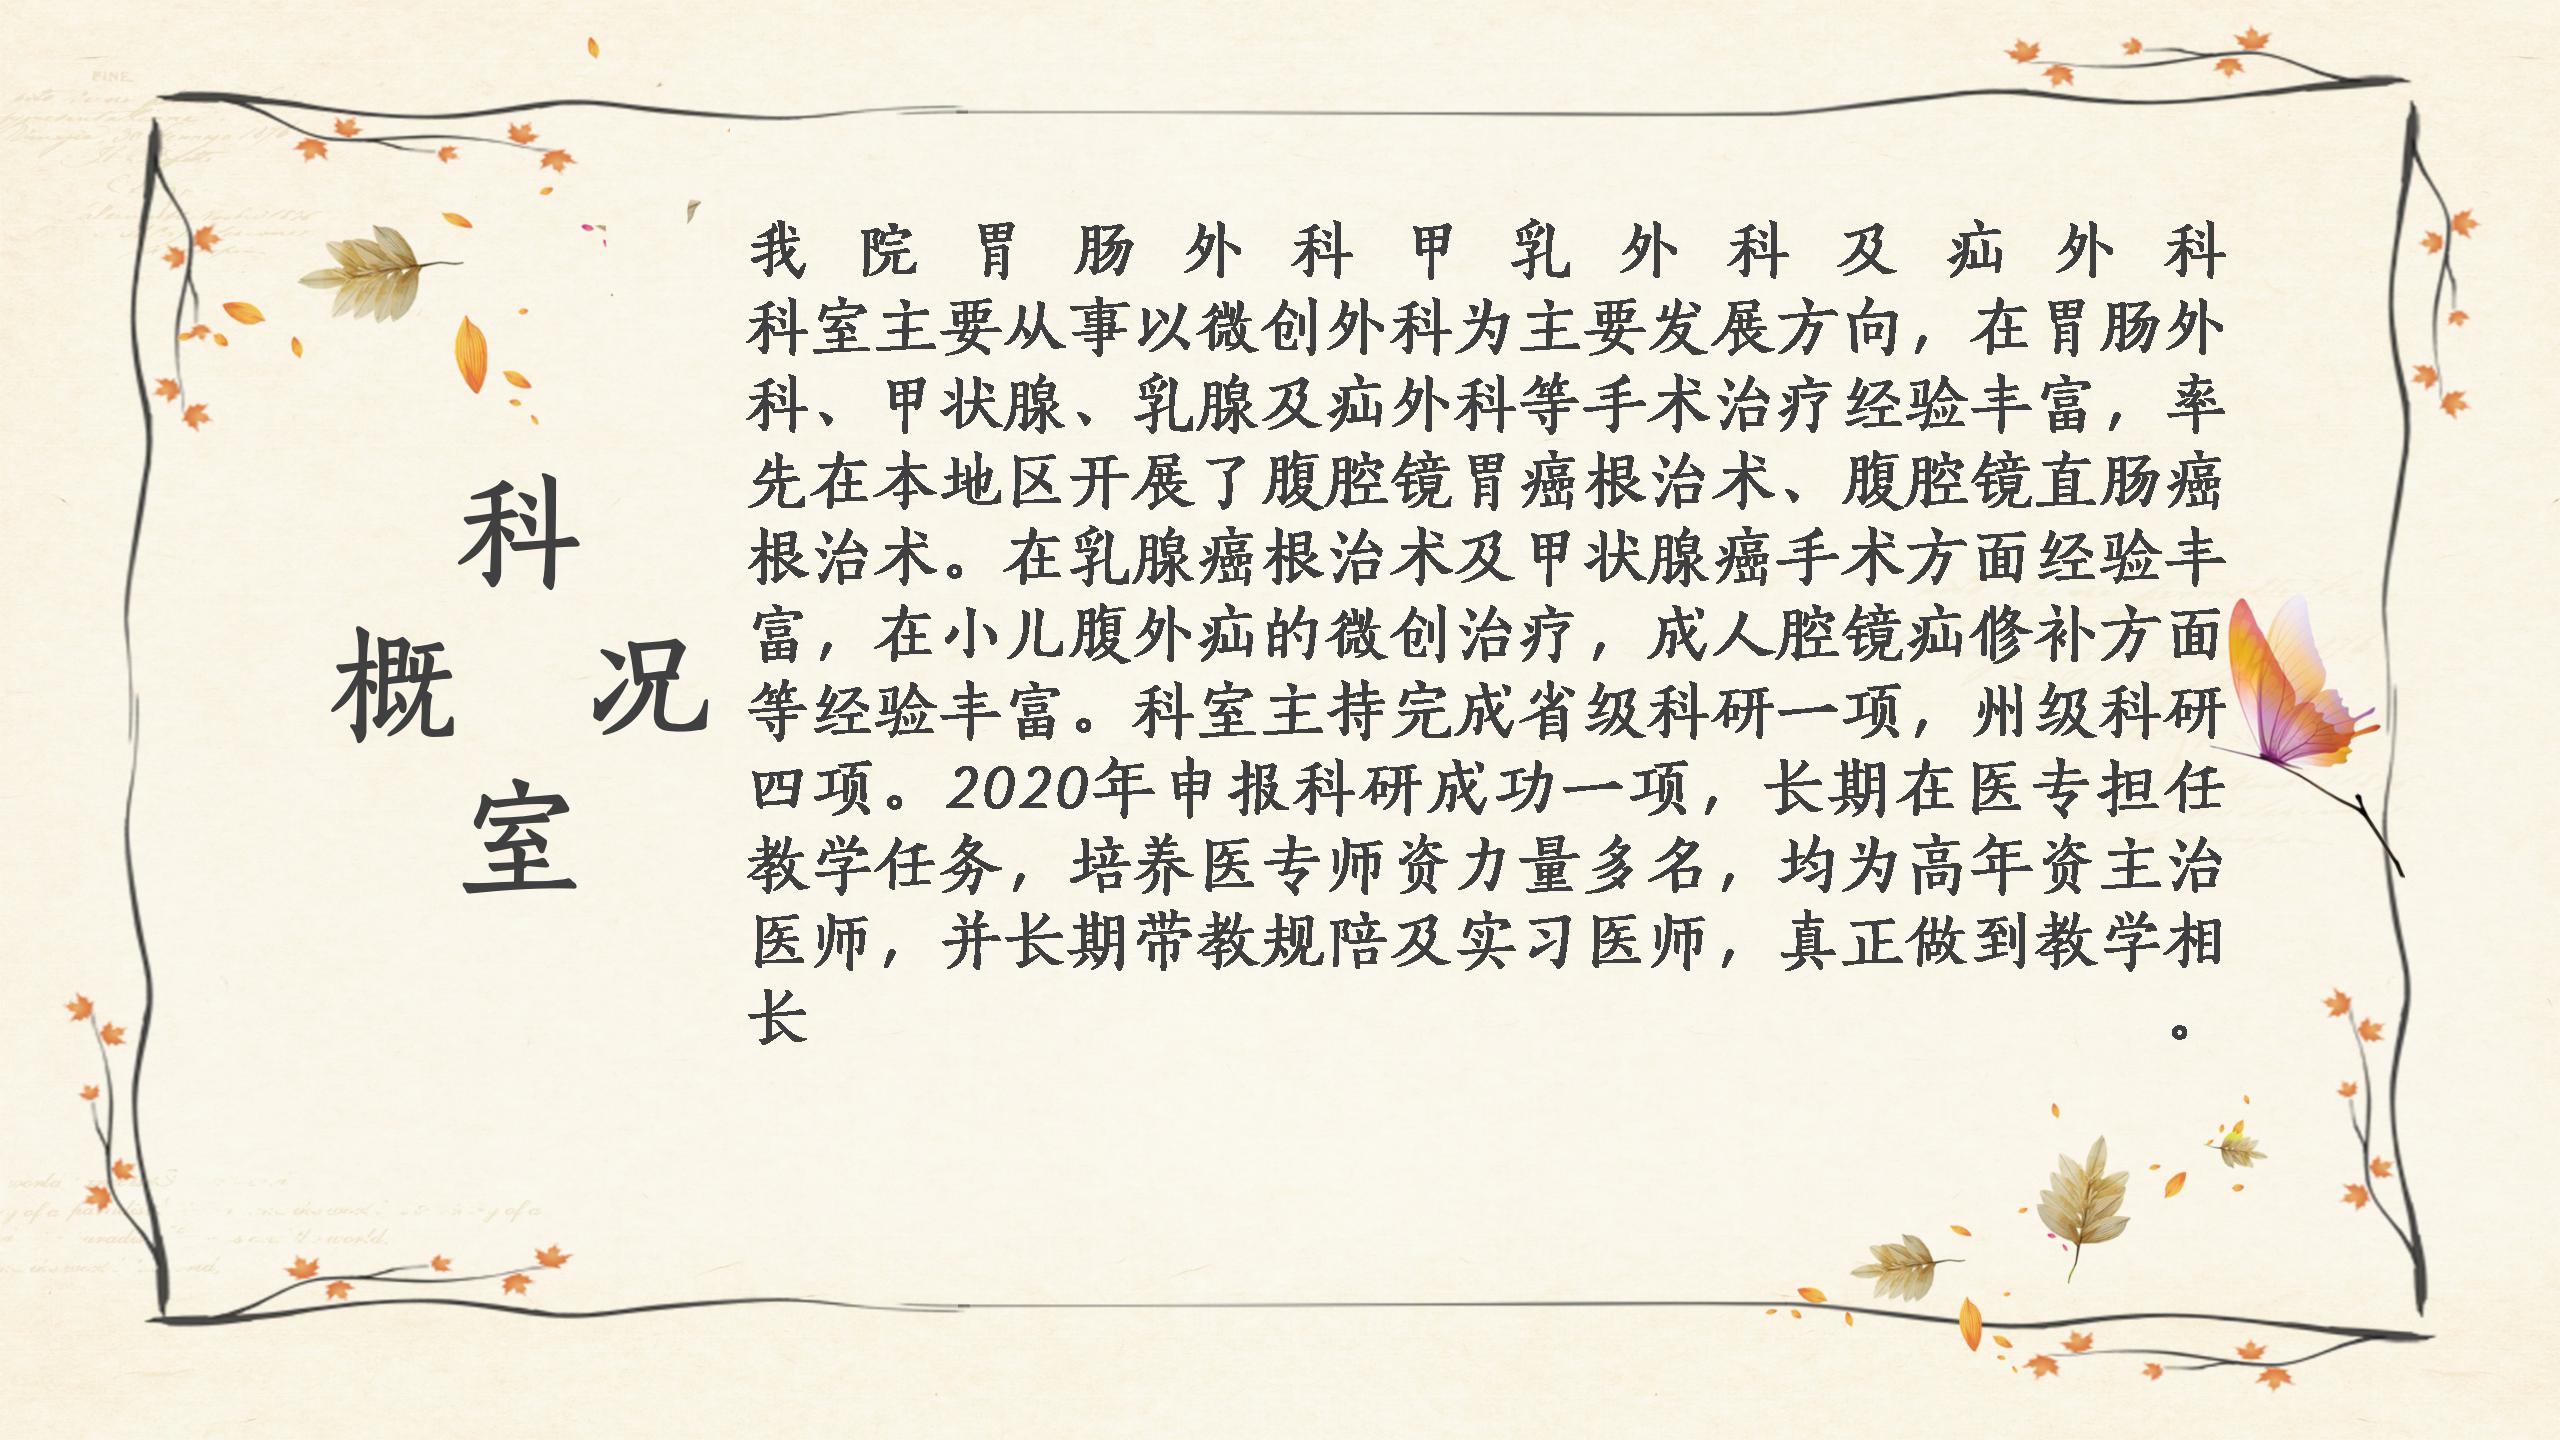 科
概 况
室
我院胃肠外科甲乳外科及疝外科
科室主要从事以微创外科为主要发展方向，在胃肠外
科、甲状腺、乳腺及疝外科等手术治疗经验丰富，率
先在本地区开展了腹腔镜胃癌根治术、腹腔镜直肠癌
根治术。在乳腺癌根治术及甲状腺癌手术方面经验丰
富，在小儿腹外疝的微创治疗，成人腔镜疝修补方面
等经验丰富。科室主持完成省级科研一项，州级科研
四项。2020年申报科研成功一项，长期在医专担任
教学任务，培养医专师资力量多名，均为高年资主治
医师，并长期带教规陪及实习医师，真正做到教学相
长。